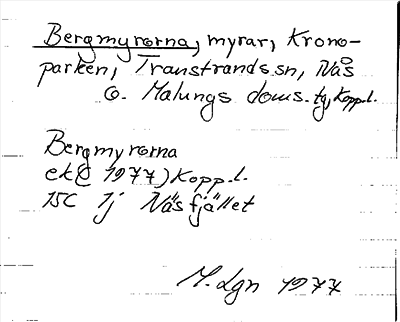 Bergmyrorna, myrar, Krono-
parken, Transtrands sn, Nås
o. Malungs doms. tg, Kopp.l.
Bergmyrorna
ek(C 1977) Kopp.l.
15C 1j Näsfjället
M.Lgn 1977